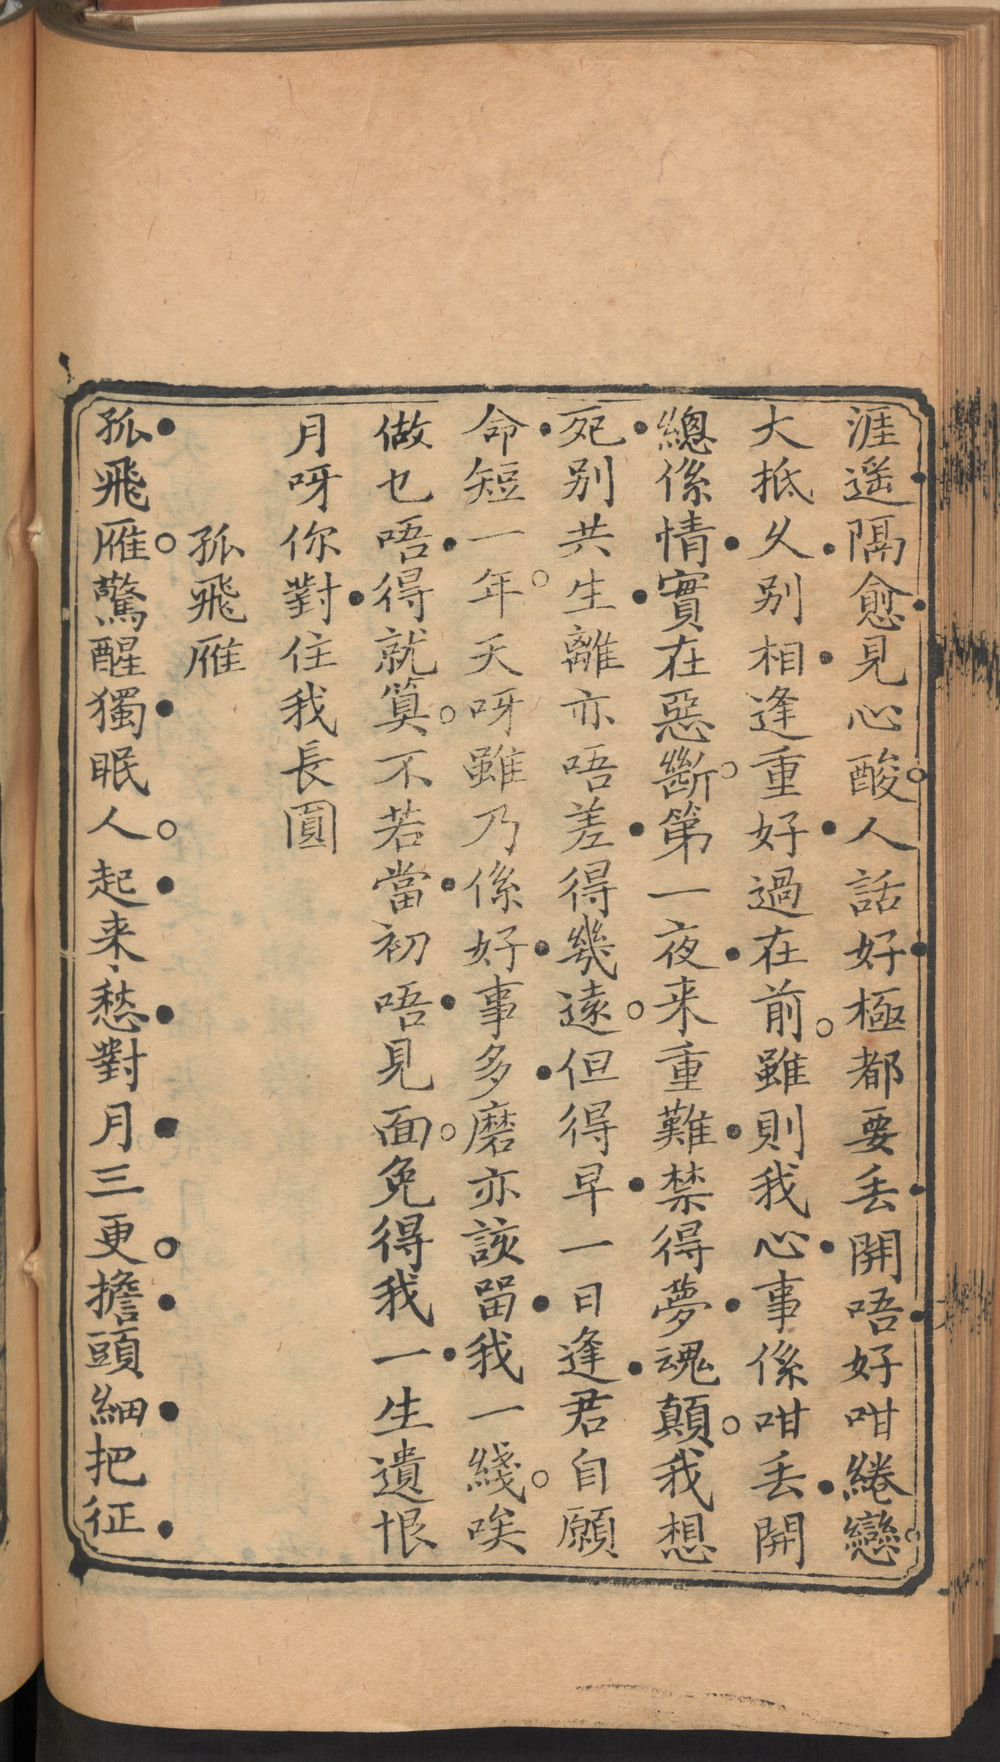 涯遥隔愈見心酸人話好極都要丢開唔好咁綣戀
大抵久别相逢重好過在前雖則我心事係咁丢開
總係情實在惡斷第一夜来重難禁得夢魂顛我想
死别共生離亦唔差得幾遠但得早一日逢君自願
命短一年天呀雖乃係好事多磨亦該畱我一綫唉
做乜唔得就算不若當初唔見面免得我一生遺恨
月呀你對住我長圓
孤飛雁
孤飛雁驚醒獨眠人起来愁對月三更擔頭細把征